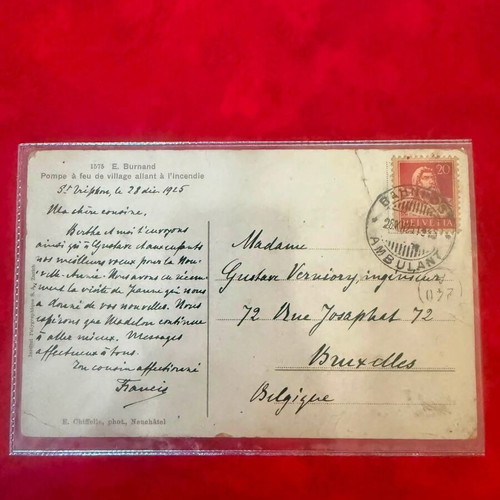 1575 E. Burnand
Pompe à feu de village allant à l'incendie
St Triphon, le 28 déc. 1925
Ma chère cousine,
Berthe et moi t'envoyons
ainsi qu'à Gustave et aux enfants
nos meilleurs voeux pour la Nou-
velle-Année. Nous avons eu récem-
ment la visite de Jeanne qui nous
a donné de vos nouvelles. Nous
espérons que Madelon continue
à aller mieux. Messages
affectueux à tous.
Ton cousin affectionné
Francis
E. Chiffelle, phot., Neuchâtel
20
HELVETIA
AMBULANT
Madame
Gustave Verniory, ingénieur
72 rue Josaphat 72
Bruxelles
Belgique